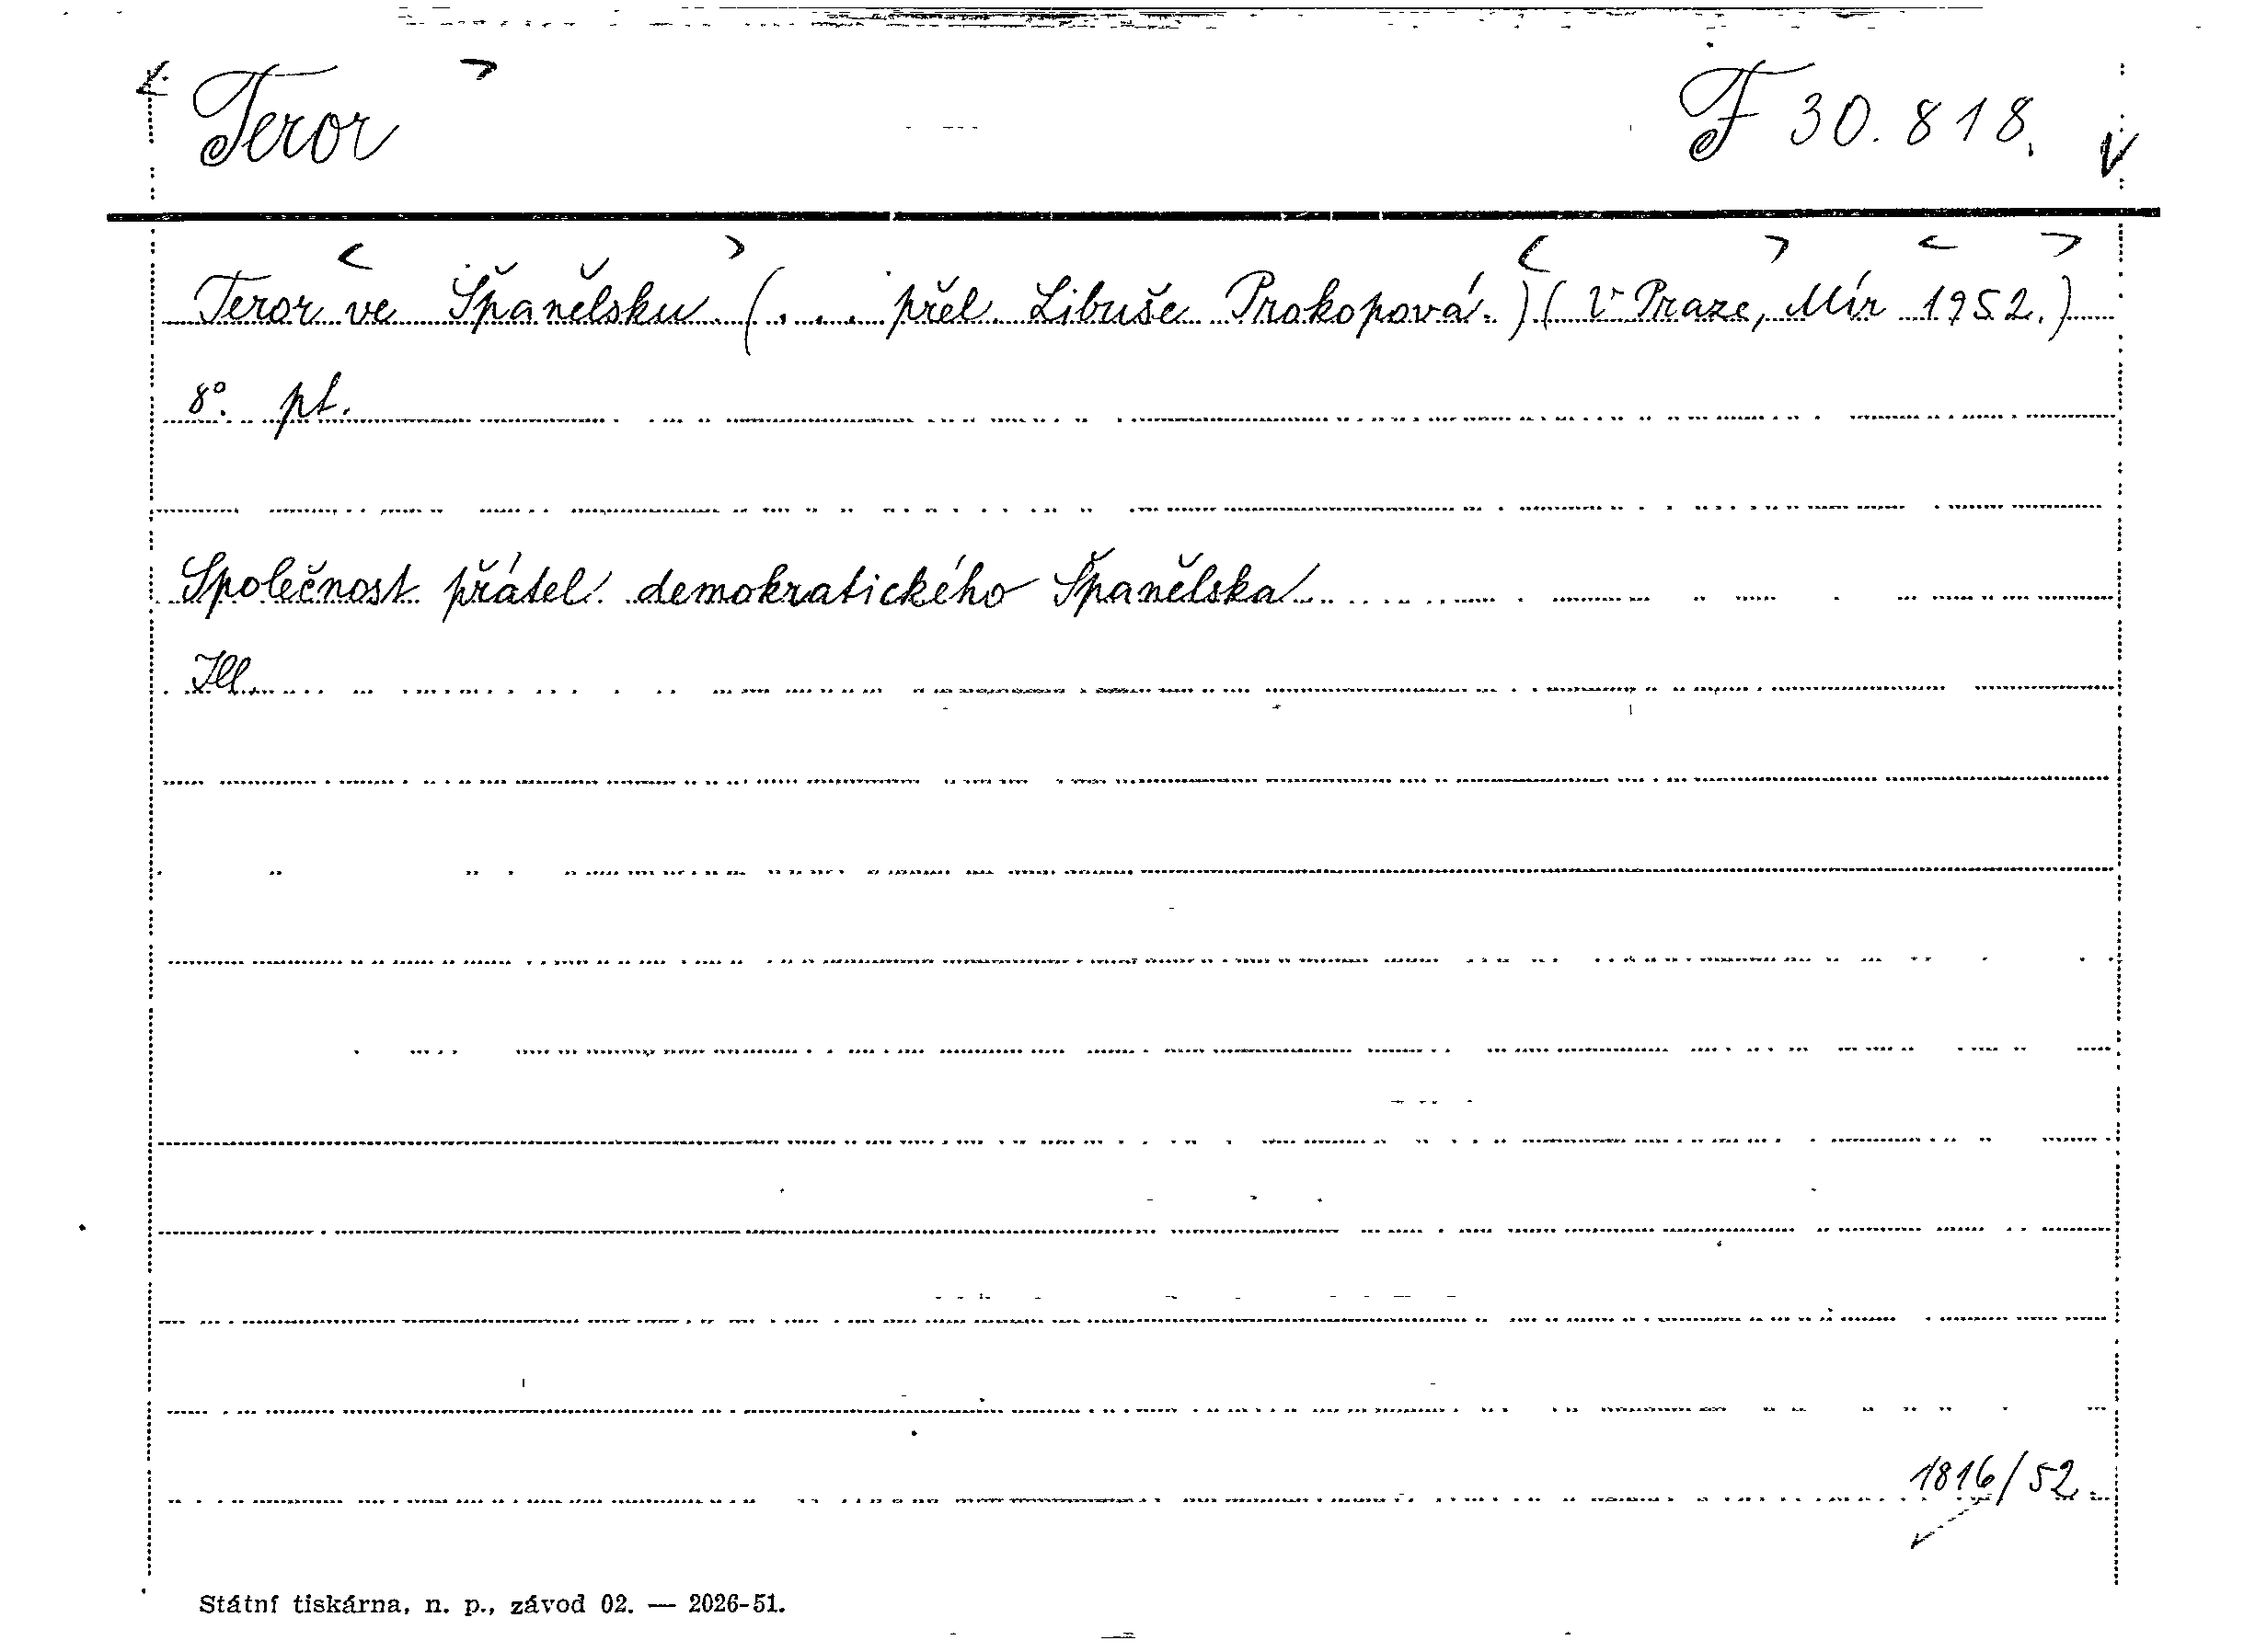 Teror F 30.818.
Teror ve Španělsku. (... přel. Libuše Prokopová.) (V Praze, Mír 1952.)
8°. pt.
Společnost přátel demokratického Španělska
Ill.
1816/52.
Státní tiskárna, n. p., závod 02. — 2026-51.